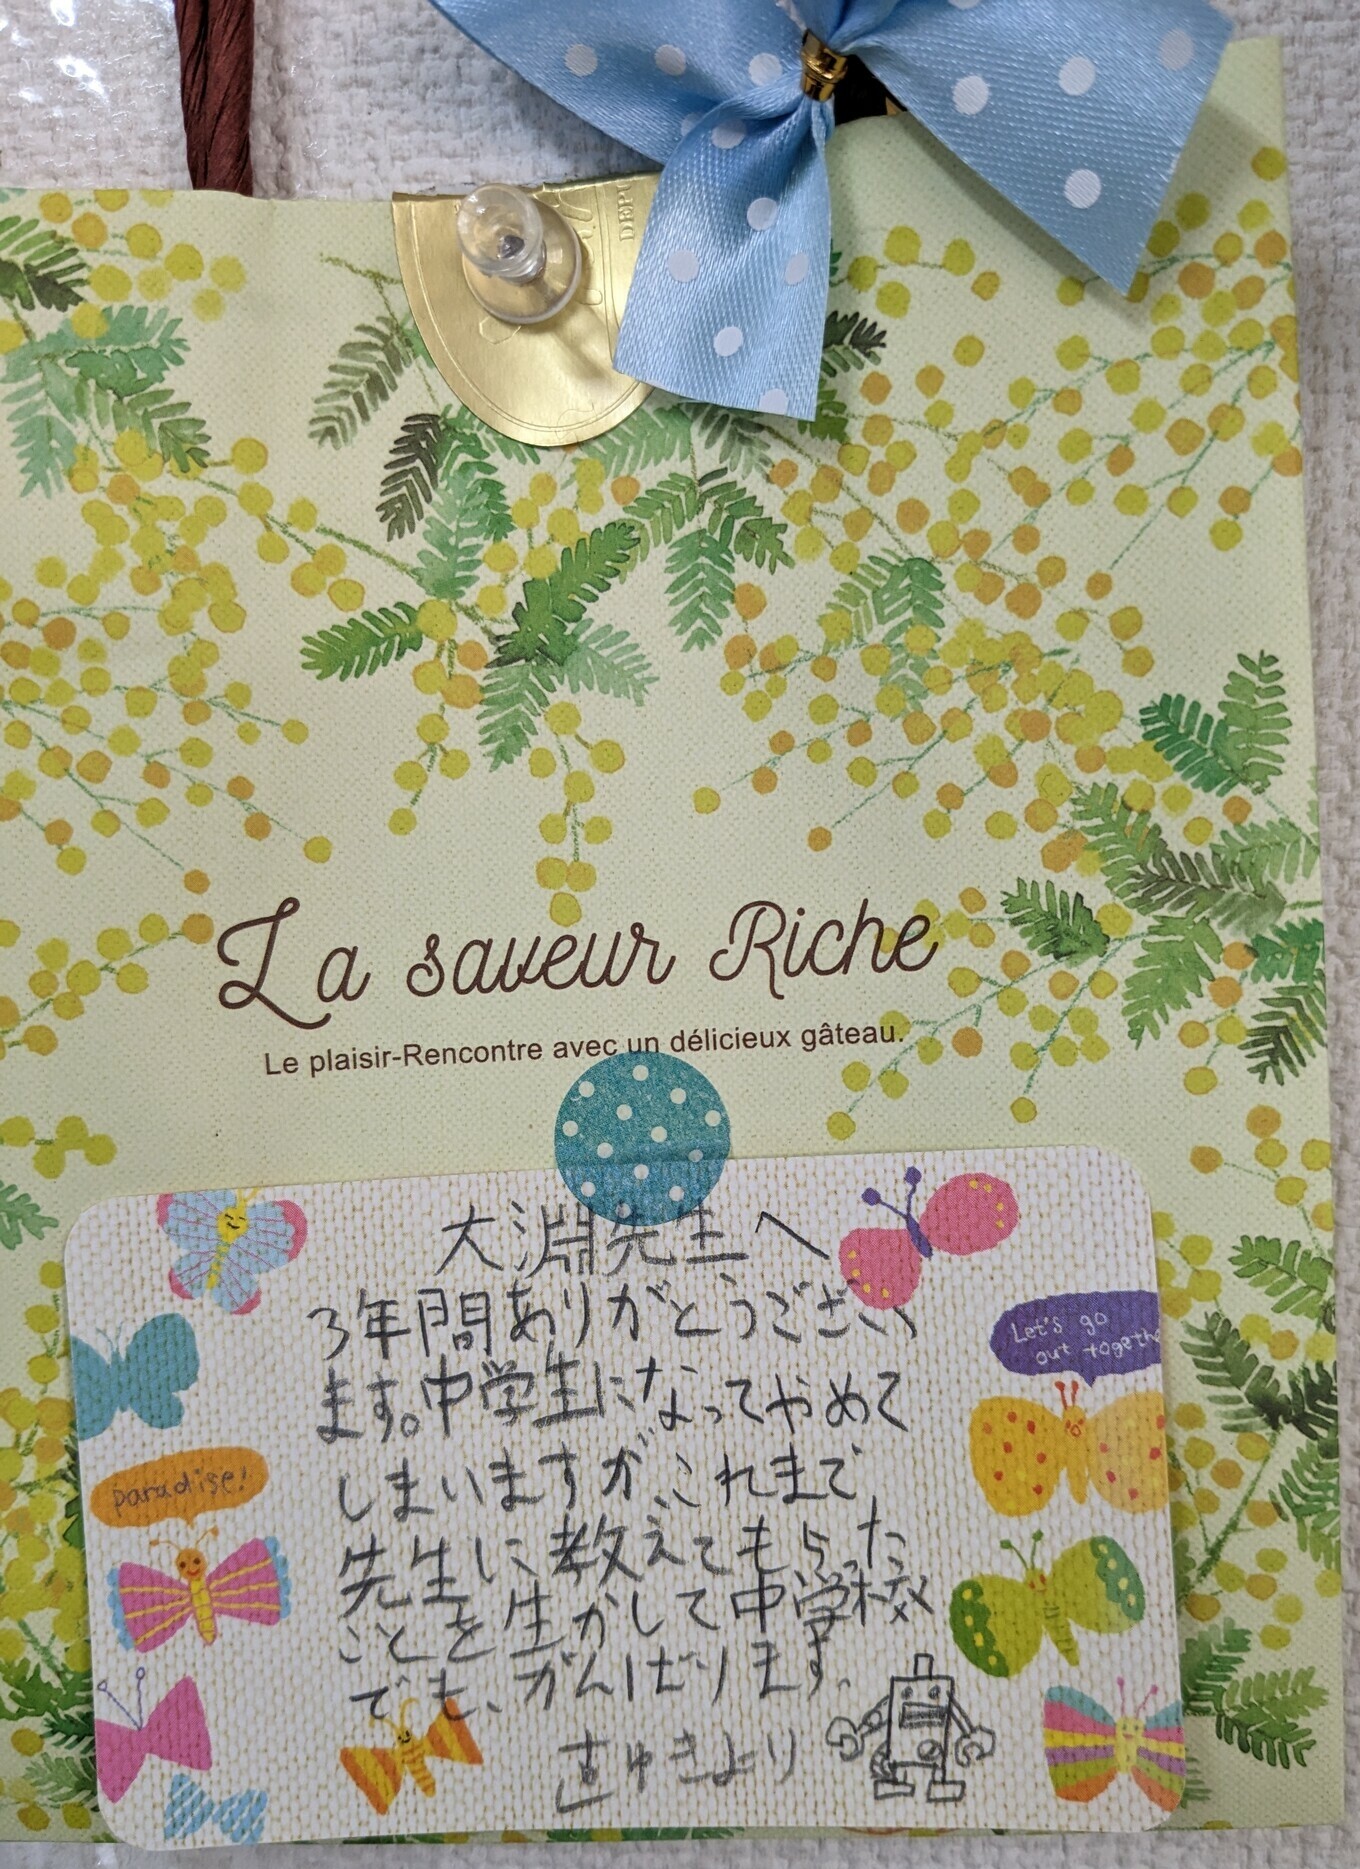 DEPU
La saveur Riche
Le plaisir-Rencontre avec un délicieux gâteau.
大淵先生へ
3年間ありがとうござい
ます。中学生になってやめて
しまいますが、これまで
先生に教えてもらった
ことを生かして中学校
でも、がんばります。
きより
Let's go
out togethe
paradise!